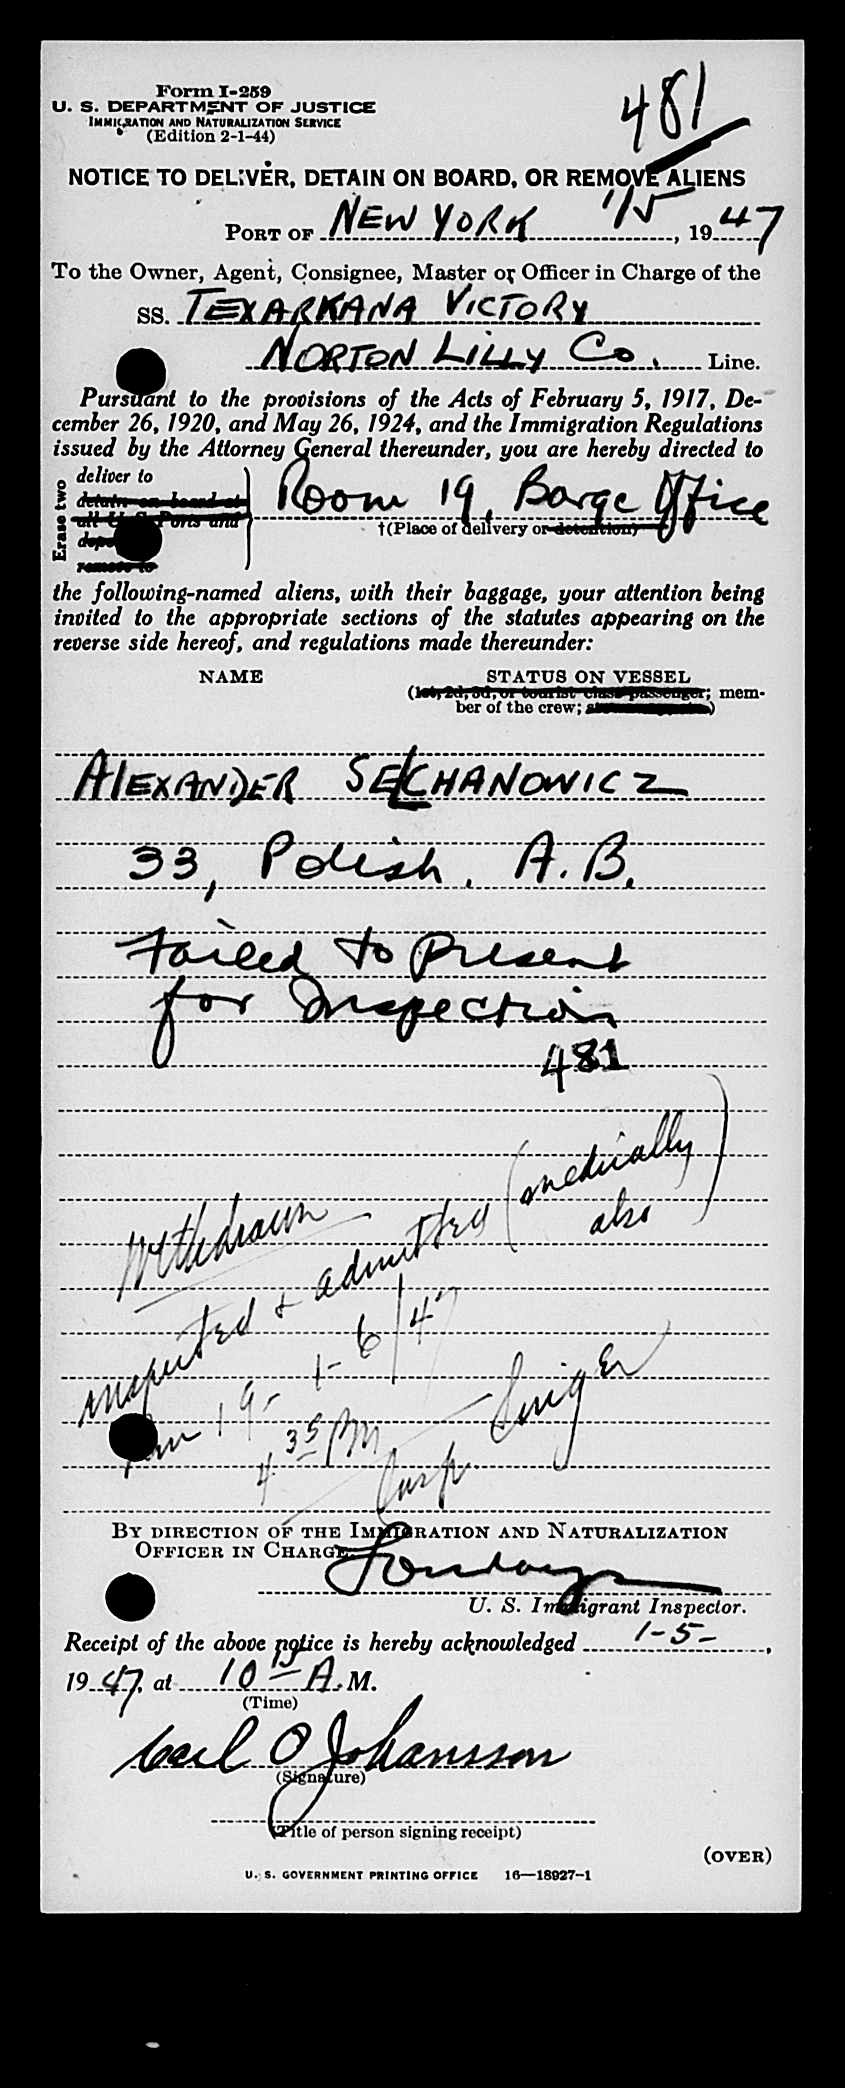 Form I-259
U. S. DEPARTMENT OF JUSTICE
IMMIGRATION AND NATURALIZATION SERVICE
(Edition 2-1-44)
481
NOTICE TO DELIVER, DETAIN ON BOARD, OR REMOVE ALIENS
PORT OF NEW YORK 1/5, 1947
To the Owner, Agent, Consignee, Master or Officer in Charge of the
SS. TEXARKANA VICTORY
NORTON LILLY Co. Line.
Pursuant to the provisions of the Acts of February 5, 1917, De-
cember 26, 1920, and May 26, 1924, and the Immigration Regulations
issued by the Attorney General thereunder, you are hereby directed to
Erase two
deliver to
detain on board at
all U. S. Ports and
remove to
Room 19, Barge Office
†(Place of delivery or detention)
the following-named aliens, with their baggage, your attention being
invited to the appropriate sections of the statutes appearing on the
reverse side hereof, and regulations made thereunder:
NAME STATUS ON VESSEL
(1st, 2d, 3d, or tourist class passenger; mem-
ber of the crew;
ALEXANDER SELCHANOWICZ
33, Polish. A.B.
Failed to Present
for Inspection
481
Withdrawn
inspected & admitted (medically
also)
Rm 19- 1-6/47
4 35 PM
Insp.
BY DIRECTION OF THE IMMIGRATION AND NATURALIZATION
OFFICER IN CHARGE
U. S. Immigrant Inspector.
Receipt of the above notice is hereby acknowledged 1-5-,
1947, at 10 15 A.M.
(Time)
Carl O Johansson
(Signature)
(Title of person signing receipt)
(OVER)
U. S. GOVERNMENT PRINTING OFFICE 16—18927-1